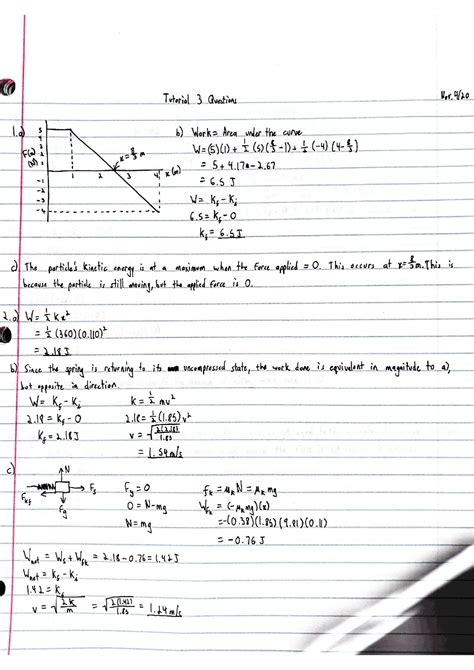 Tutorial 3 Questions
Nov. 4/20
1. a)
5
4
3
2
1
F(x)
(N)
-1
-2
-3
-4
1 2 3 4 x (m)
x = 8/3 m
b) Work = Area under the curve
W = (5)(1) + 1/2 (5)(8/3 - 1) + 1/2 (-4)(4 - 8/3)
= 5 + 4.17 - 2.67
= 6.5 J
W = Kf - Ki
6.5 = Kf - 0
Kf = 6.5J
c) The particle's kinetic energy is at a maximum when the force applied = 0. This occurs at x = 8/3 m. This is
because the particle is still moving, but the applied force is 0.
2. a) W = 1/2 kx²
= 1/2 (360)(0.110)²
= 2.18 J
b) Since the spring is returning to its uncompressed state, the work done is equivalent in magnitude to a),
but opposite in direction.
W = Kf - Ki
2.18 = Kf - 0
Kf = 2.18J
k = 1/2 mv²
2.18 = 1/2 (1.85) v²
v = √(2(2.18)/1.85)
= 1.54 m/s
c)
N
Fs
Fkf
Fg
Fy = 0
0 = N - mg
N = mg
fk = μk N = μk mg
Wfk = (-μk mg)(x)
= -(0.38)(1.85)(9.81)(0.11)
= -0.76 J
Wnet = Ws + Wfk = 2.18 - 0.76 = 1.42 J
Wnet = Kf - Ki
1.42 = Kf
v = √(2K/m) = √(2(1.42)/1.85) = 1.24 m/s